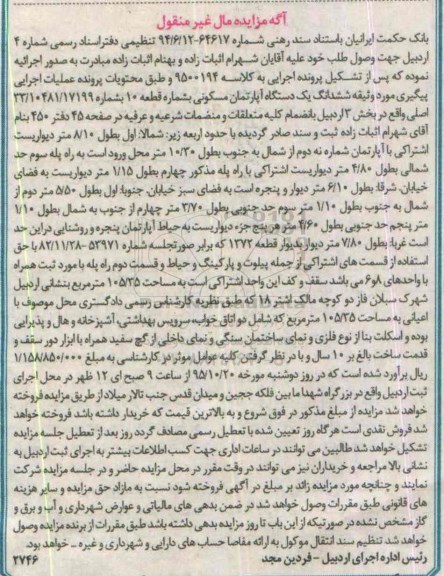 آگه مزایده مال غیر منقول
بانک حکمت ایرانیان باستناد سند رهنی شماره ۶۴۶۱۷-۹۴/۶/۱۲ تنظیمی دفتراسناد رسمی شماره ۴
اردبیل جهت وصول طلب خود علیه آقایان شهرام اثبات زاده و بهنام اثبات زاده مبادرت به صدور اجرائیه
نموده که پس از تشکیل پرونده اجرایی به کلاسه ۹۵۰۰۱۹۴ و طبق محتویات پرونده عملیات اجرایی
پیگیری مورد وثیقه ششدانگ یک دستگاه آپارتمان مسکونی بشماره قطعه ۱۰ بشماره ۳۳/۱۰۴۸۱/۱۷۱۹۹
اصلی واقع در بخش ۳ اردبیل بانضمام کلیه متعلقات و منضمات شرعیه و عرفیه در صفحه ۴۵ دفتر ۴۵۰ بنام
آقای شهرام اثبات زاده ثبت و سند صادر گردیده با حدود اربعه زیر: شمالا: اول بطول ۸/۱۰ متر دیواریست
اشتراکی با آپارتمان شماره نه دوم از شمال به جنوب بطول ۱۰/۳۰ متر محل ورود است به راه پله سوم حد
شمالی بطول ۴/۸۰ متر دیواریست اشتراکی با راه پله مذکور چهارم بطول ۱/۱۵ متر دیواریست به فضای
خیابان. شرقا: بطول ۶/۱۰ متر دیوار و پنجره است به فضای سبز خیابان. جنوبا: اول بطول ۵/۵۰ متر دوم از
شمال به جنوب بطول ۱/۱۰ متر سوم حد جنوبی بطول ۳/۷۰ متر چهارم از جنوب به شمال بطول ۱/۱۰
متر پنجم حد جنوبی بطول ۴/۶۰ متر هر پنج جزء دیواریست به حیاط آپارتمان پنجره و روشنایی دراین حد
است غربا: بطول ۷/۸۰ متر دیوار بدیوار قطعه ۱۳۷۲ که برابر صورتجلسه شماره ۵۳۹۷۱-۸۲/۱۱/۲۸ با حق
استفاده از قسمت های اشتراکی از جمله پیلوت و پارکینگ و حیاط و قسمت دوم راه پله با مورد ثبت همراه
با واحدهای ۸و۶ می باشد سقف و کف این واحد اشتراکی است به مساحت ۱۰۵/۳۵ مترمربع بنشانی اردبیل
شهرک سبلان فاز دو کوچه مالک اشتر ۱۸ که طبق نظریه کارشناس رسمی دادگستری محل موصوف با
اعیانی به مساحت ۱۰۵/۳۵ مترمربع که شامل دو اتاق خواب، سرویس بهداشتی، آشپزخانه و هال و پذیرایی
بوده و اسکلت بنا از نوع فلزی و نمای ساختمان سنگی و نمای داخلی از گچ سفید همراه با ابزار دور سقف و
قدمت ساخت بالغ بر ۱۰ سال و با در نظر گرفتن کلیه عوامل موثر در کارشناسی به مبلغ ۱/۱۵۸/۸۵۰/۰۰۰
ریال برآورد شده است که در روز دوشنبه مورخه ۹۵/۱۰/۲۰ از ساعت ۹ صبح الی ۱۲ ظهر در محل اجرای
ثبت اردبیل واقع در بزرگراه شهدا ما بین فلکه ججین و میدان قدس جنب تالار میلاد از طریق مزایده فروخته
خواهد شد مزایده از مبلغ مذکور در فوق شروع و به بالاترین قیمت که خریدار داشته باشد فروخته خواهد
شد فروش نقدی است هر گاه روز تعیین شده با تعطیل رسمی مصادف گردد روز بعد از تعطیل جلسه مزایده
تشکیل خواهد شد طالبین می توانند در ساعات اداری جهت کسب اطلاعات بیشتر به اجرای ثبت اردبیل به
نشانی بالا مراجعه و خریداران نیز می توانند در وقت مقرر در محل مزایده حاضر و در جلسه مزایده شرکت
نمایند و چنانچه مورد مزایده زائد بر مبلغ در آگهی فروخته شود نسبت به مازاد حق مزایده و سایر هزینه
های قانونی طبق مقررات وصول خواهد شد در ضمن بدهی های مالیاتی و عوارض شهرداری و آب و برق و
گاز مشخص نشده در صورتیکه از این باب تا روز مزایده بدهی داشته باشد طبق مقررات از برنده مزایده وصول
خواهد شد تنظیم سند انتقال موکول به ارائه مفاصا حساب های دارایی و شهرداری و غیره ... خواهد بود.
رئیس اداره اجرای اردبیل - فردین مجد ۲۷۴۶